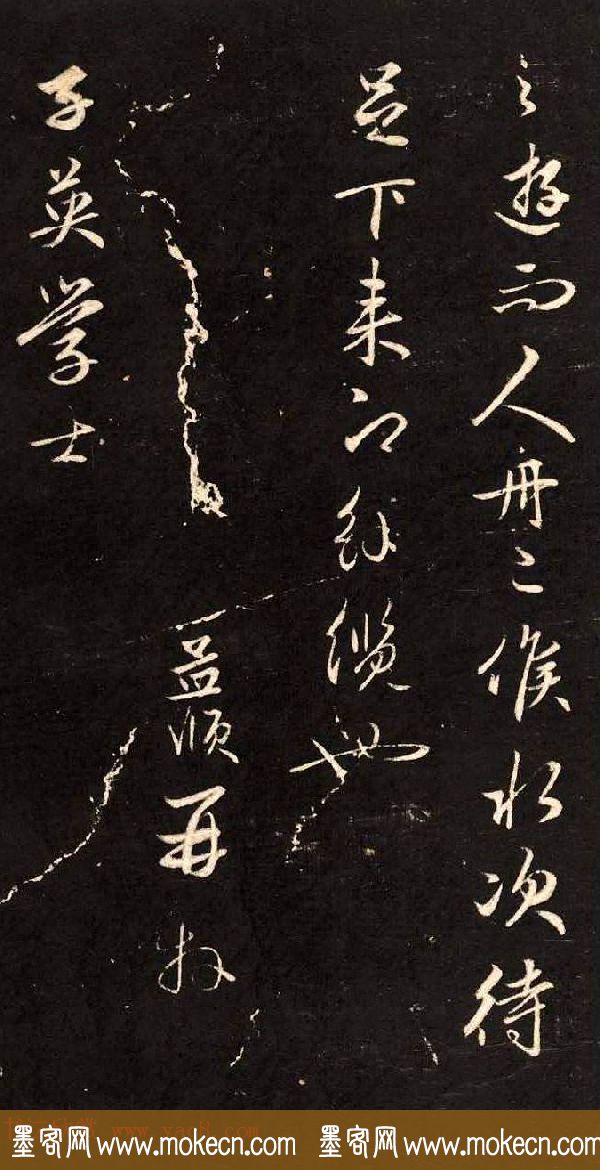 之遊而人舟已候水次待
足下来即解纜也
益順再拜
子英学士
墨客网www.mokecn.com 墨客网www.mokecn.com